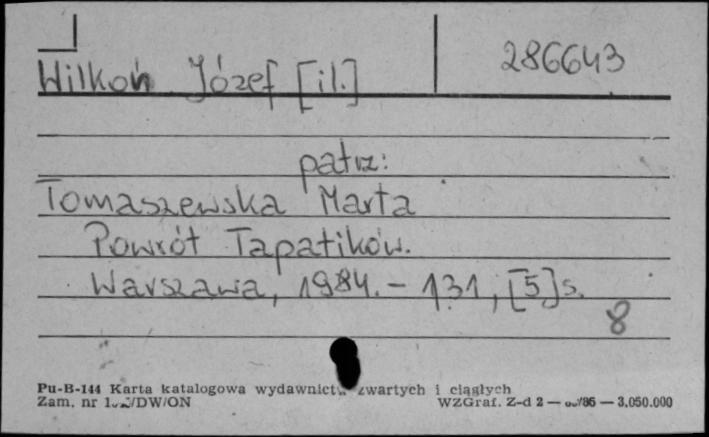 286643
Wilkoń Józef [il.]
patrz:
Tomaszewska Marta
Powrót Tapatików.
Warszawa, 1984. - 131, [5] s.
8
Pu-B-144 Karta katalogowa wydawnictw zwartych i ciągłych
Zam. nr /DW/ON WZGraf. Z-d 2 — /86 — 3.050.000